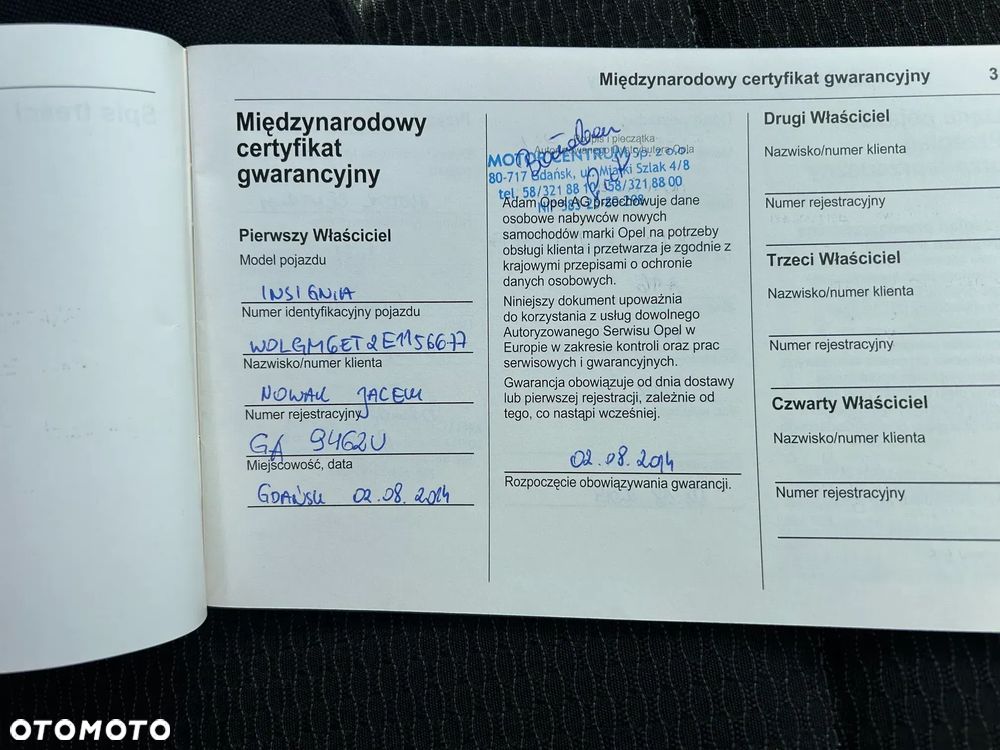 Międzynarodowy certyfikat gwarancyjny 3
Międzynarodowy
certyfikat
gwarancyjny
Pierwszy Właściciel
Model pojazdu
INSIGNIA
Numer identyfikacyjny pojazdu
WOLGM6ET2E1156677
Nazwisko/numer klienta
NOWAK JACEK
Numer rejestracyjny
GA 9462U
Miejscowość, data
GDAŃSK 02.08.2014
Podpis i pieczątka
Autoryzowanego Dystrybutora Opla
MOTOR CENTRUM Sp. z o.o.
80-717 Gdańsk, ul. Miałki Szlak 4/8
tel. 58/321 88 10, 58/321 88 00
NIP
Adam Opel AG przechowuje dane
osobowe nabywców nowych
samochodów marki Opel na potrzeby
obsługi klienta i przetwarza je zgodnie z
krajowymi przepisami o ochronie
danych osobowych.
Niniejszy dokument upoważnia
do korzystania z usług dowolnego
Autoryzowanego Serwisu Opel w
Europie w zakresie kontroli oraz prac
serwisowych i gwarancyjnych.
Gwarancja obowiązuje od dnia dostawy
lub pierwszej rejestracji, zależnie od
tego, co nastąpi wcześniej.
02.08.2014
Rozpoczęcie obowiązywania gwarancji.
Drugi Właściciel
Nazwisko/numer klienta
Numer rejestracyjny
Trzeci Właściciel
Nazwisko/numer klienta
Numer rejestracyjny
Czwarty Właściciel
Nazwisko/numer klienta
Numer rejestracyjny
OTOMOTO